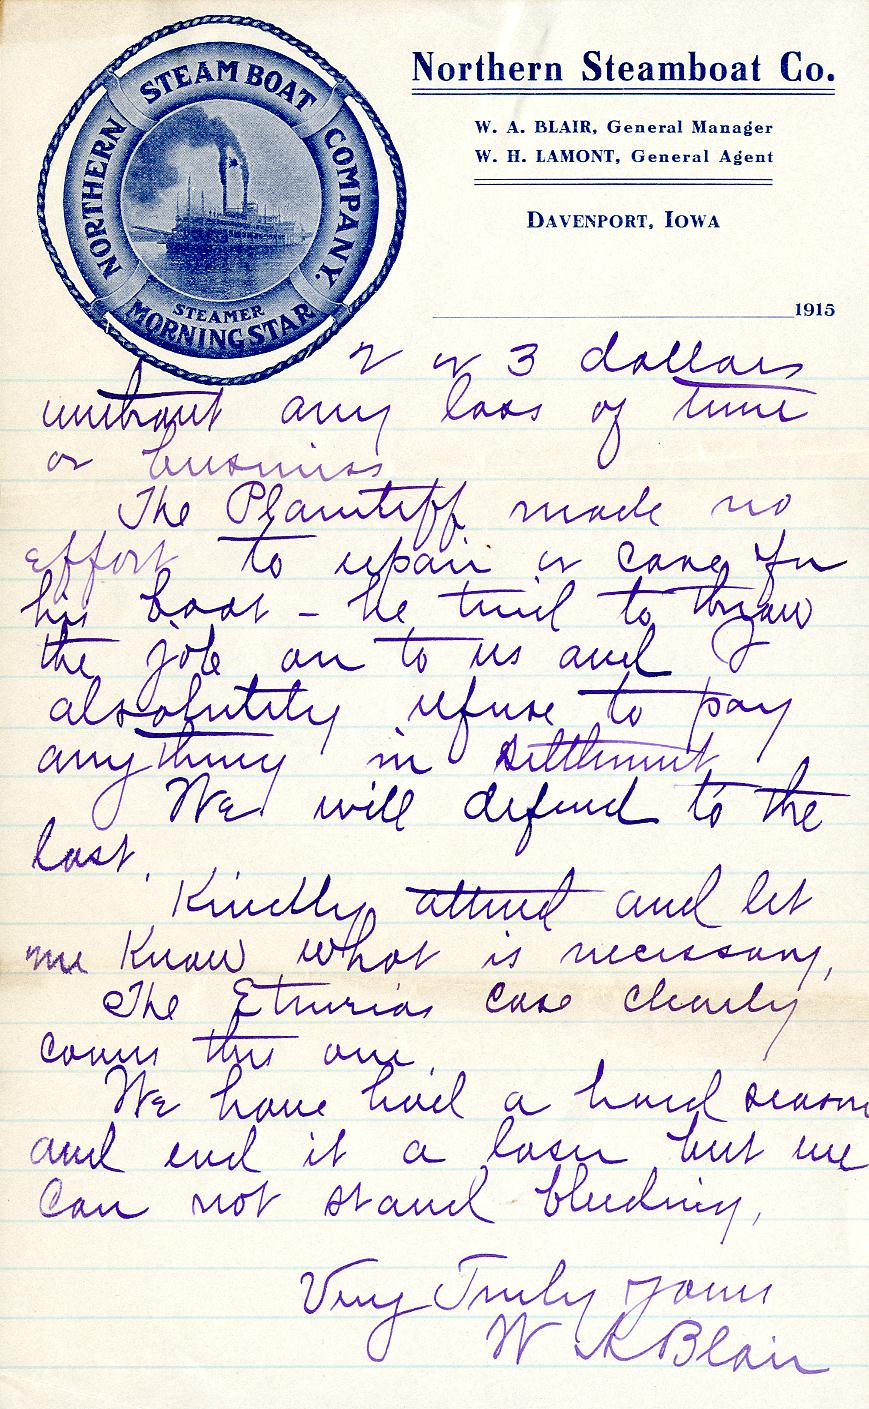 NORTHERN STEAM BOAT COMPANY.
STEAMER
MORNING STAR
Northern Steamboat Co.
W. A. BLAIR, General Manager
W. H. LAMONT, General Agent
DAVENPORT, IOWA
1915
2 or 3 dollars
without any loss of time
or business
The Plaintiff made no
effort to repair or care for
his boat - he tried to throw
the job on to us and I
absolutely refuse to pay
anything in settlement
We will defend to the
last.
Kindly attend and let
me Know what is necessary,
The Etrurias case clearly
covers this one.
We have had a hard season
and end it a loser but we
can not stand bleeding,
Very Truly yours
W A Blair